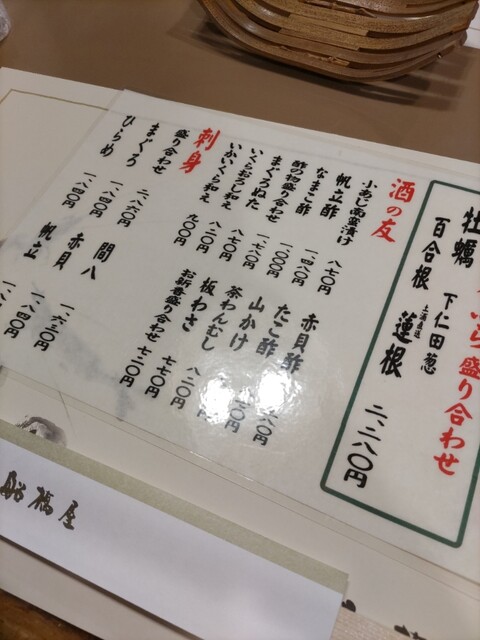 ら盛り合わせ
牡蠣 下仁田葱
百合根 蓮根
二、二八〇円
酒の友
小あじ南蛮漬け 八七〇円
帆立酢 一、四八〇
なまこ酢 一、〇〇〇円
酢の物盛り合わせ 一、七八〇
まぐろぬた 八七〇円
いくらおろし和え 八二〇円
いかいくら和え 九〇〇円
赤貝酢
たこ酢
山かけ
茶わんむし
板わさ 七七〇円
お新香盛り合わせ 七二〇円
刺身
盛り合わせ 二、八六〇円
まぐろ 一、八四〇円
ひらめ 一、八四〇円
間八 一、六三〇円
赤貝 一、八四〇円
帆立
船橋屋